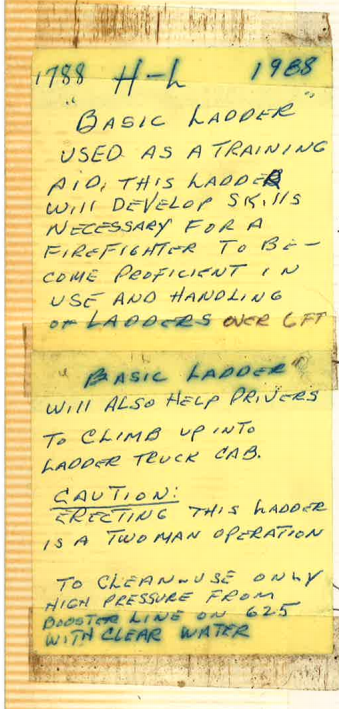 1788 H-L 1988
"BASIC LADDER"
USED AS A TRAINING
AID, THIS LADDER
WILL DEVELOP SKILLS
NECESSARY FOR A
FIREFIGHTER TO BE-
COME PROFICIENT IN
USE AND HANDLING
OF LADDERS OVER 6FT
"BASIC LADDER"
WILL ALSO HELP DRIVERS
TO CLIMB UP INTO
LADDER TRUCK CAB.
CAUTION:
ERECTING THIS LADDER
IS A TWO MAN OPERATION
TO CLEAN-USE ONLY
HIGH PRESSURE FROM
BOOSTER LINE ON 625
WITH CLEAR WATER